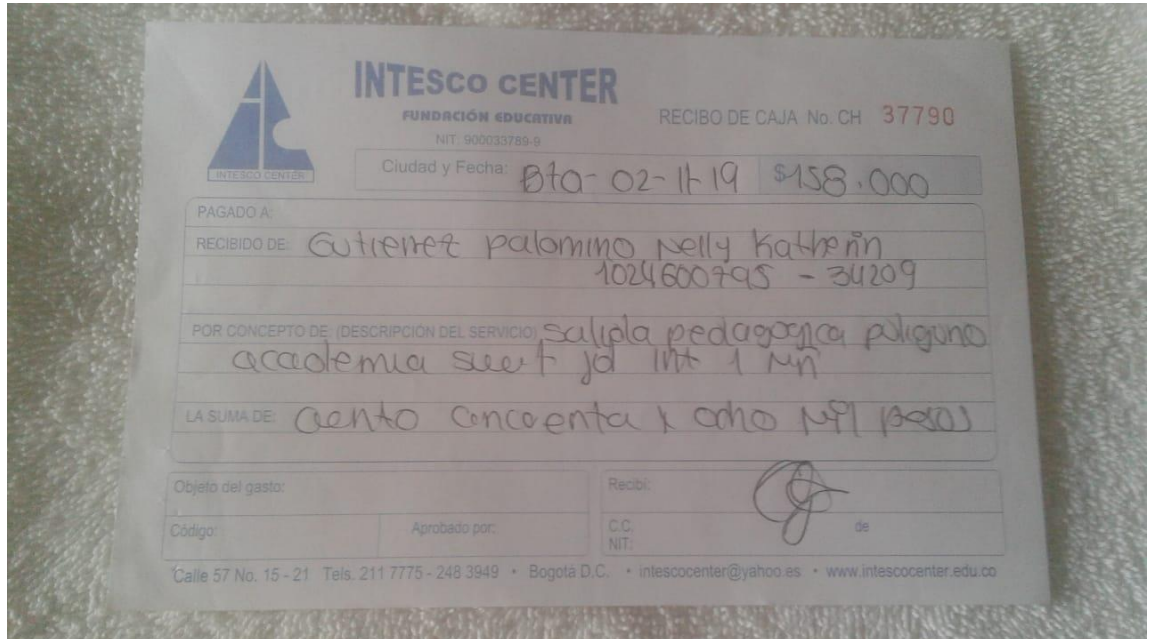 INTESCO CENTER
FUNDACIÓN EDUCATIVA
NIT: 900033789-9
RECIBO DE CAJA No. CH 37790
INTESCO CENTER
Ciudad y Fecha: Bta- 02-11-19 $158.000
PAGADO A:
RECIBIDO DE: Gutierrez palomino Nelly Katherin
1024600795 - 34209
POR CONCEPTO DE: (DESCRIPCIÓN DEL SERVICIO) Salida pedagogica poligono
academia jd Int 1
LA SUMA DE: ciento cincuenta y ocho Mil pesos
Objeto del gasto:
Recibí:
Código:
Aprobado por:
C.C.
NIT:
de
Calle 57 No. 15 - 21 Tels. 211 7775 - 248 3949 • Bogotá D.C. • intescocenter@yahoo.es • www.intescocenter.edu.co